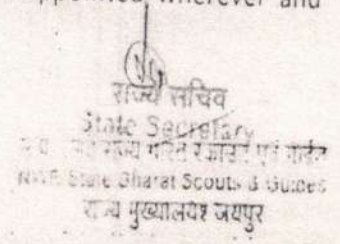 wherever and
राज्य सचिव
State Secretary
राज्य भारत स्काउट एवं गाईड
State Bharat Scouts & Guides
राज्य मुख्यालय जयपुर